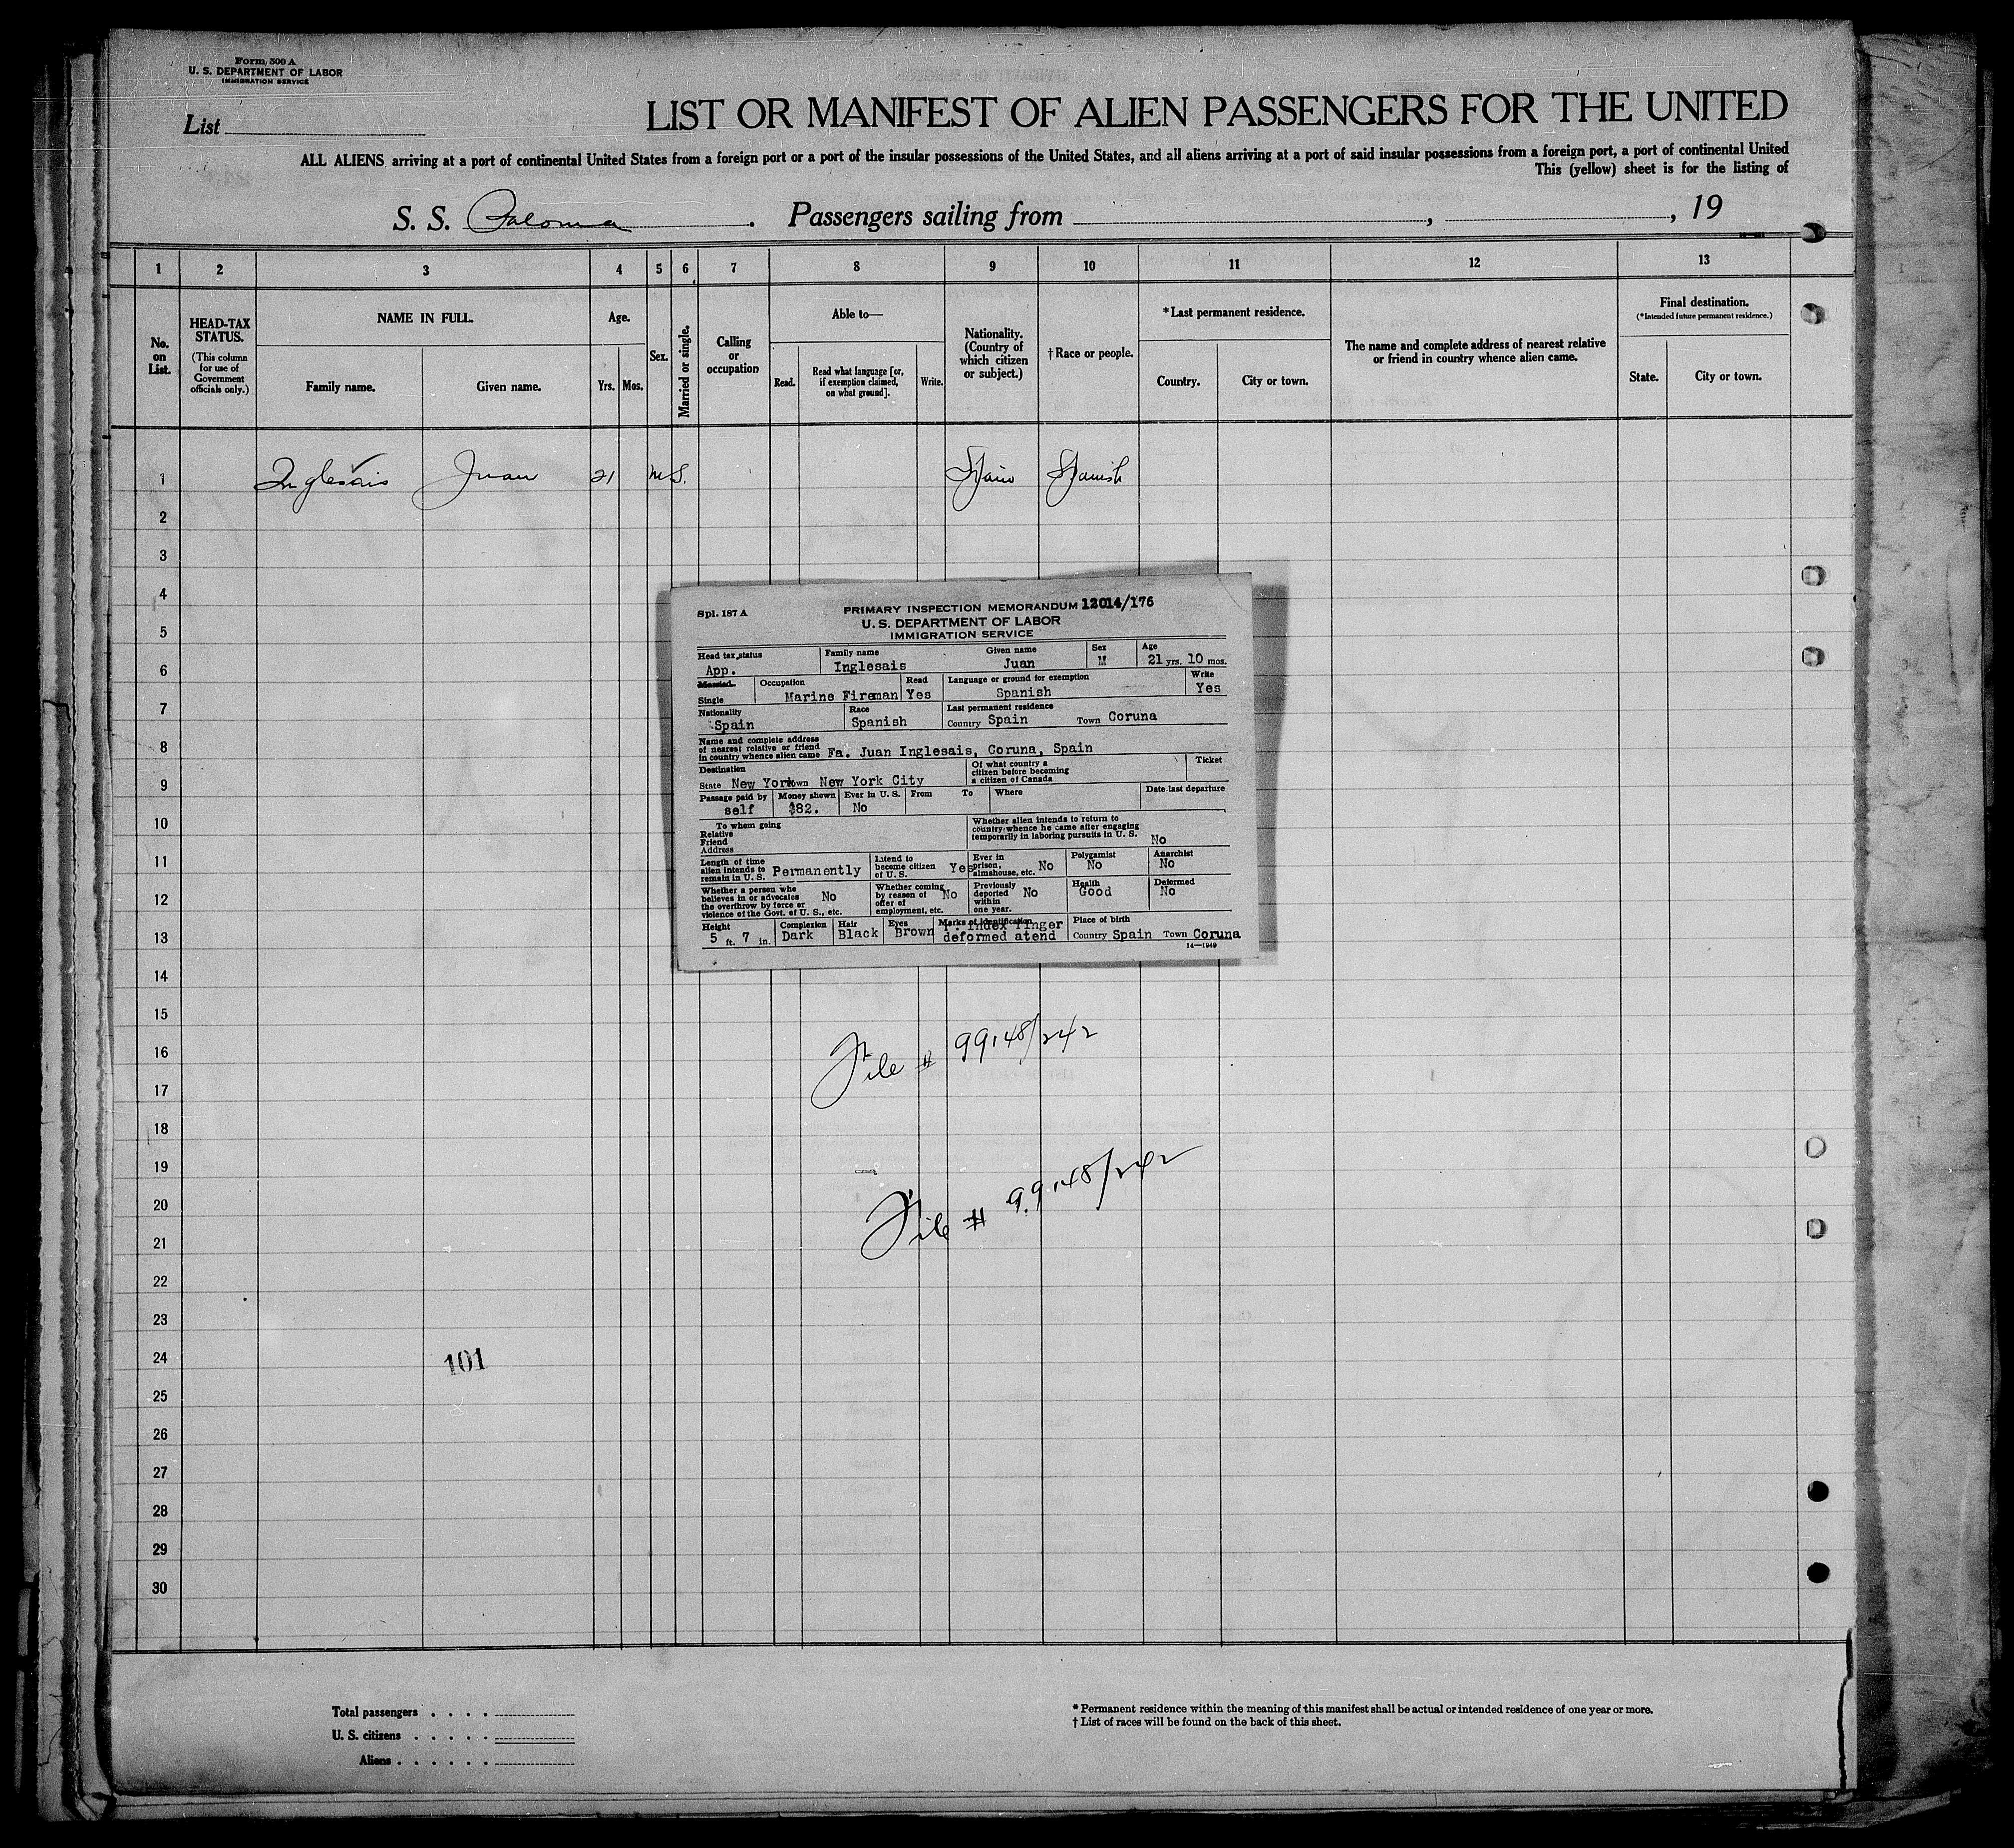 Form 500 A
U. S. DEPARTMENT OF LABOR
IMMIGRATION SERVICE
List
LIST OR MANIFEST OF ALIEN PASSENGERS FOR THE UNITED
ALL ALIENS arriving at a port of continental United States from a foreign port or a port of the insular possessions of the United States, and all aliens arriving at a port of said insular possessions from a foreign port, a port of continental United
This (yellow) sheet is for the listing of
S. S. Paloma. Passengers sailing from , , 19
1 2 3 4 5 6 7 8 9 10 11 12 13
No. on List.
HEAD-TAX STATUS.
(This column for use of Government officials only.)
NAME IN FULL.
Family name. Given name.
Age.
Yrs. Mos.
Sex.
Married or single.
Calling or occupation
Able to—
Read. Read what language [or, if exemption claimed, on what ground]. Write.
Nationality. (Country of which citizen or subject.)
† Race or people.
* Last permanent residence.
Country. City or town.
The name and complete address of nearest relative or friend in country whence alien came.
Final destination.
(* Intended future permanent residence.)
State. City or town.
1 Inglesais Juan 21 M S. Spain Spanish
2
3
4
5
6
7
8
9
10
11
12
13
14
15
16
17
18
19
20
21
22
23
24
25
26
27
28
29
30
Spl. 187 A
PRIMARY INSPECTION MEMORANDUM 12014/176
U. S. DEPARTMENT OF LABOR
IMMIGRATION SERVICE
Head tax status Family name Given name Sex Age
App. Inglesais Juan M 21 yrs. 10 mos.
Married Occupation Read Language or ground for exemption Write
Single Marine Fireman Yes Spanish Yes
Nationality Race Last permanent residence
Spain Spanish Country Spain Town Coruna
Name and complete address
of nearest relative or friend
in country whence alien came Fa. Juan Inglesais, Coruna, Spain
Destination Of what country a citizen before becoming a citizen of Canada Ticket
State New York Town New York City
Passage paid by Money shown Ever in U. S. From To Where Date last departure
self $82. No
To whom going
Relative
Friend
Address
Whether alien intends to return to
country whence he came after engaging
temporarily in laboring pursuits in U. S. No
Length of time alien intends to remain in U. S. Permanently
Intend to become citizen of U. S. Yes
Ever in prison, almshouse, etc. No
Polygamist No
Anarchist No
Whether a person who believes in or advocates the overthrow by force or violence of the Govt. of U. S., etc. No
Whether coming by reason of offer of employment, etc. No
Previously deported within one year. No
Health Good
Deformed No
Height Complexion Hair Eyes Marks of identification Place of birth
5 ft. 7 in. Dark Black Brown index finger deformed atend Country Spain Town Coruna
14—1949
File # 99148/242
File # 99148/242
101
Total passengers . . . .
U. S. citizens . . . . .
Aliens . . . . . .
* Permanent residence within the meaning of this manifest shall be actual or intended residence of one year or more.
† List of races will be found on the back of this sheet.